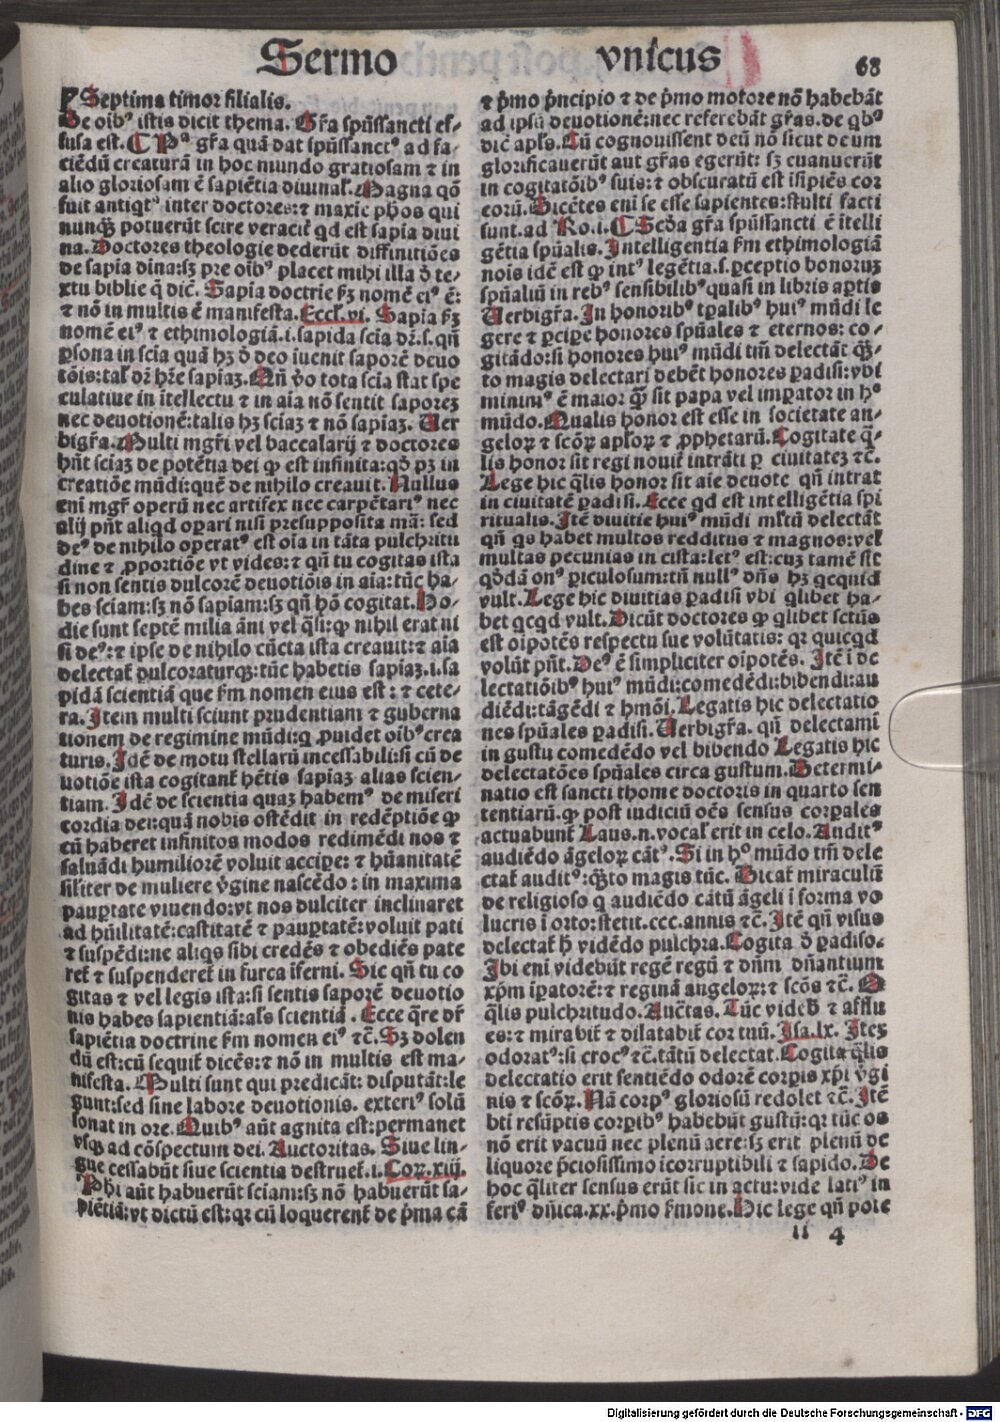 Sermo vnicus 68
Septima timor filialis.
De oibꝰ istis dicit thema. Gr̄a spūssancti ef-
fusa est. ¶ Pᵃ gr̄a quā dat spūssanctꝰ ad fa-
ciēdū creaturā in hoc mundo gratiosam ⁊ in
alio gloriosam ē sapiētia diuinal'. Magna qō
fuit antiqtꝰ inter doctores: ⁊ maxīe ph̄os qui
nunꝙ̄ potuerūt scire veraciť qd est sapīa diui
na. Doctores theologie dederūt diffinitiōes
de sapīa dīna: sꝫ pre oībꝰ placet mihi illa ō te-
xtu biblie q̄ dic̄. Sapīa doctrīe ẜꝫ nomē eiꝰ ē:
⁊ nō in multis ē manifesta. Eccl'. vi. Sapīa ẜꝫ
nomē eiꝰ ⁊ ethimologiā. i. sapida scīa dr̄. s. qn̄
ꝑsona in scīa quā hꝫ ō deo iuenit saporē deuo
tōis: tal' dr̄ hr̄e sapīaꝫ. Qn̄ ꝟo tota scīa stat spe
culatiue in ītellectu ⁊ in aīa nō sentit saporeꝫ
nec deuotionē: talis hꝫ scīaꝫ ⁊ nō sapīaꝫ. Uer
bigr̄a. Multi mgr̄i vel baccalarij ⁊ doctores
hn̄t scīaꝫ de potētia dei ꝙ est infinita: qō pꝫ in
creatiōe mūdi: quē de nihilo creauit. Nullus
enī mgr̄ operū nec artifex nec carpētariꝰ nec
alij pn̄t aliqd oꝑari nisi presupposita mā: sed
deꝰ de nihilo operatꝰ est oīa in tāta pulchritu
dine ⁊ ꝓportiōe vt vides: ⁊ qn̄ tu cogitas ista
si non sentis dulcorē deuotiōis in aīa: tūc ha-
bes sciam: sꝫ nō sapiam: sꝫ qn̄ hō cogitat. Ho-
die sunt septē milia āni vel q̄si: ꝙ nihil erat ni
si deꝰ: ⁊ ipse de nihilo cūcta ista creauit: ⁊ aīa
delectať pulcoraturqꝫ: tūc habetis sapīaꝫ. i. sa
pidā scientiā que ẜm nomen eius est: ⁊ cete-
ra. Item multi sciunt prudentiam ⁊ guberna
tionem de regimine mūdi: q̄ ꝓuidet oībꝰ crea
turis. Idē de motu stellarū incessabili: si cū de
uotiōe ista cogitanť hētis sapīaꝫ alias scien-
tiam. Idē de scientia quaꝫ habemꝰ de miseri
cordia dei: quā nobis ostēdit in redēptiōe ꝙ
cū haberet infinitos modos redimēdi nos ⁊
saluādi humiliorē voluit accipe: ⁊ hūanitatē
sil'iter de muliere ꝟgine nascēdo: in maxima
pauꝑtate viuendo: vt nos dulciter inclinaret
ad hūilitatē: castitatē ⁊ pauꝑtatē: voluit pati
⁊ suspēdi: ne aliqs sibi credēs ⁊ obediēs pate
reť ⁊ suspendereť in furca īferni. Sic qn̄ tu co
gitas ⁊ vel legis ista: si sentis saporē deuotio
nis habes sapientiā: al's scientiā. Ecce q̄re dr̄
sapiētia doctrine ẜm nomen eiꝰ ⁊c̄. Sꝫ dolen
dū est: cū sequiť dicēs: ⁊ nō in multis est ma-
nifesta. Multi sunt qui predicāt: disputāt: le
gunt: sed sine labore deuotionis. exteriꝰ solū
sonat in ore. Quibꝰ aūt agnita est: permanet
vsqꝫ ad cōspectum dei. Auctoritas. Siue lin-
gue cessabūt siue scientia destrueť. i. Coꝝ. xiij.
Phi aūt habuerūt sciam: sꝫ nō habuerūt sa-
piētiā: vt dictū est: qꝛ cū loquerenť de p̄ma cā
⁊ p̄mo p̄ncipio ⁊ de p̄mo motore nō habebāt
ad ipsū deuotionē: nec referebāt gr̄as. de qbꝰ
dic̄ apl's. Cū cognouissent deū nō sicut deum
glorificauerūt aut gr̄as egerūt: sꝫ euanuerūt
in cogitatōibꝰ suis: ⁊ obscuratū est īsipiēs cor
eorū. Dicētes enī se esse sapientes: stulti facti
sunt. ad Ro. i. ¶ Scd̄a gr̄a spūssancti ē ītelli
gētia spūalis. Intelligentia ẜm ethimologiā
nois idē est ꝙ intꝰ legētia. s. ꝑceptio bonoruꝫ
spūaliū in rebꝰ sensibilibꝰ quasi in libris aꝑtis
Uerbigr̄a. In honoribꝰ tꝑalibꝰ huiꝰ mūdi le
gere ⁊ ꝑcipe honores spūales ⁊ eternos: co-
gitādo: si honores huiꝰ mūdi tm̄ delectāt ꝙ̄-
to magis delectari debēt honores ꝑadisi: vbi
minimꝰ ē maior ꝙ̄ sit papa vel imꝑator in hꝰ
mūdo. Qualis honor est esse in societate an-
geloꝝ ⁊ scōꝝ apl'oꝝ ⁊ ꝓphetarū. Cogitate q̄-
lis honor sit regi nouiť intrāti ꝑ ciuitateꝫ ⁊c̄.
Lege hic q̄lis honor sit aīe deuote qn̄ intrat
in ciuitatē ꝑadisi. Ecce qd est intelligētia spi
ritualis. Itē diuitie huiꝰ mūdi ml'tū delectāt
qn̄ qs habet multos redditus ⁊ magnos: vel
multas pecunias in cista: letꝰ est: cuꝫ tamē sit
qōdā onꝰ ꝑiculosum: tn̄ nullꝰ dn̄s hꝫ qcquid
vult. Lege hic diuitias ꝑadisi vbi qlibet ha-
bet qcqd vult. Dicūt doctores ꝙ qlibet sctūs
est oīpotēs respectu sue volūtatis: qꝛ quicqd
volūt pn̄t. Deꝰ ē simpliciter oīpotēs. Itē ī de
lectatiōibꝰ huiꝰ mūdi: comedēdi: bibendi: au
diēdi: tāgēdi ⁊ hmōi. Legatis hic delectatio
nes spūales ꝑadisi. Uerbigr̄a. qn̄ delectamī
in gustu comedēdo vel bibendo Legatis hic
delectatōes spūales circa gustum. Determi-
natio est sancti thome doctoris in quarto sen
tentiarū. ꝙ post iudiciū oēs sensus corꝑales
actuabunť Laus. n. vocal' erit in celo. Auditꝰ
audiēdo āgeloꝝ cātꝰ. Si in hꝰ mūdo tm̄ dele
ctať auditꝰ: ꝙ̄to magis tūc. Dicať miraculū
de religioso q̄ audiēdo cātū āgeli ī forma vo
lucris ī orto: stetit. ccc. annis ⁊c̄. Itē qn̄ visus
delectať ḣ vidēdo pulchra. Cogita ō ꝑadiso.
Ibi enī videbūt regē regū ⁊ dn̄m dn̄antium
xp̄m īꝑatorē: ⁊ reginā angeloꝝ: ⁊ scōs ⁊c̄. O
q̄lis pulchritudo. Auc̄tas. Tūc videb̄ ⁊ afflu
es: ⁊ mirabiť ⁊ dilatabiť cor tuū. Isa. lx. Iteꝫ
odoratꝰ: si crocꝰ ⁊c̄. tātū delectat. Cogita q̄lis
delectatio erit sentiēdo odorē corꝑis xp̄i ꝟgi
nis ⁊ scōꝝ. Nā corpꝰ gloriosū redolet ⁊c̄. Itē
bti resūptis corꝑibꝰ habebūt gustū: qꝛ tūc os
nō erit vacuū nec plenū aere: sꝫ erit plenū de
liquore p̄ciosissimo īcorruptibili ⁊ sapido. De
hoc q̄liter sensus erūt sic in actu: vide latiꝰ in
feriꝰ dn̄ica. xx. p̄mo ẜmone. Hic lege qn̄ pote
ll 4
Digitalisierung gefördert durch die Deutsche Forschungsgemeinschaft - DFG